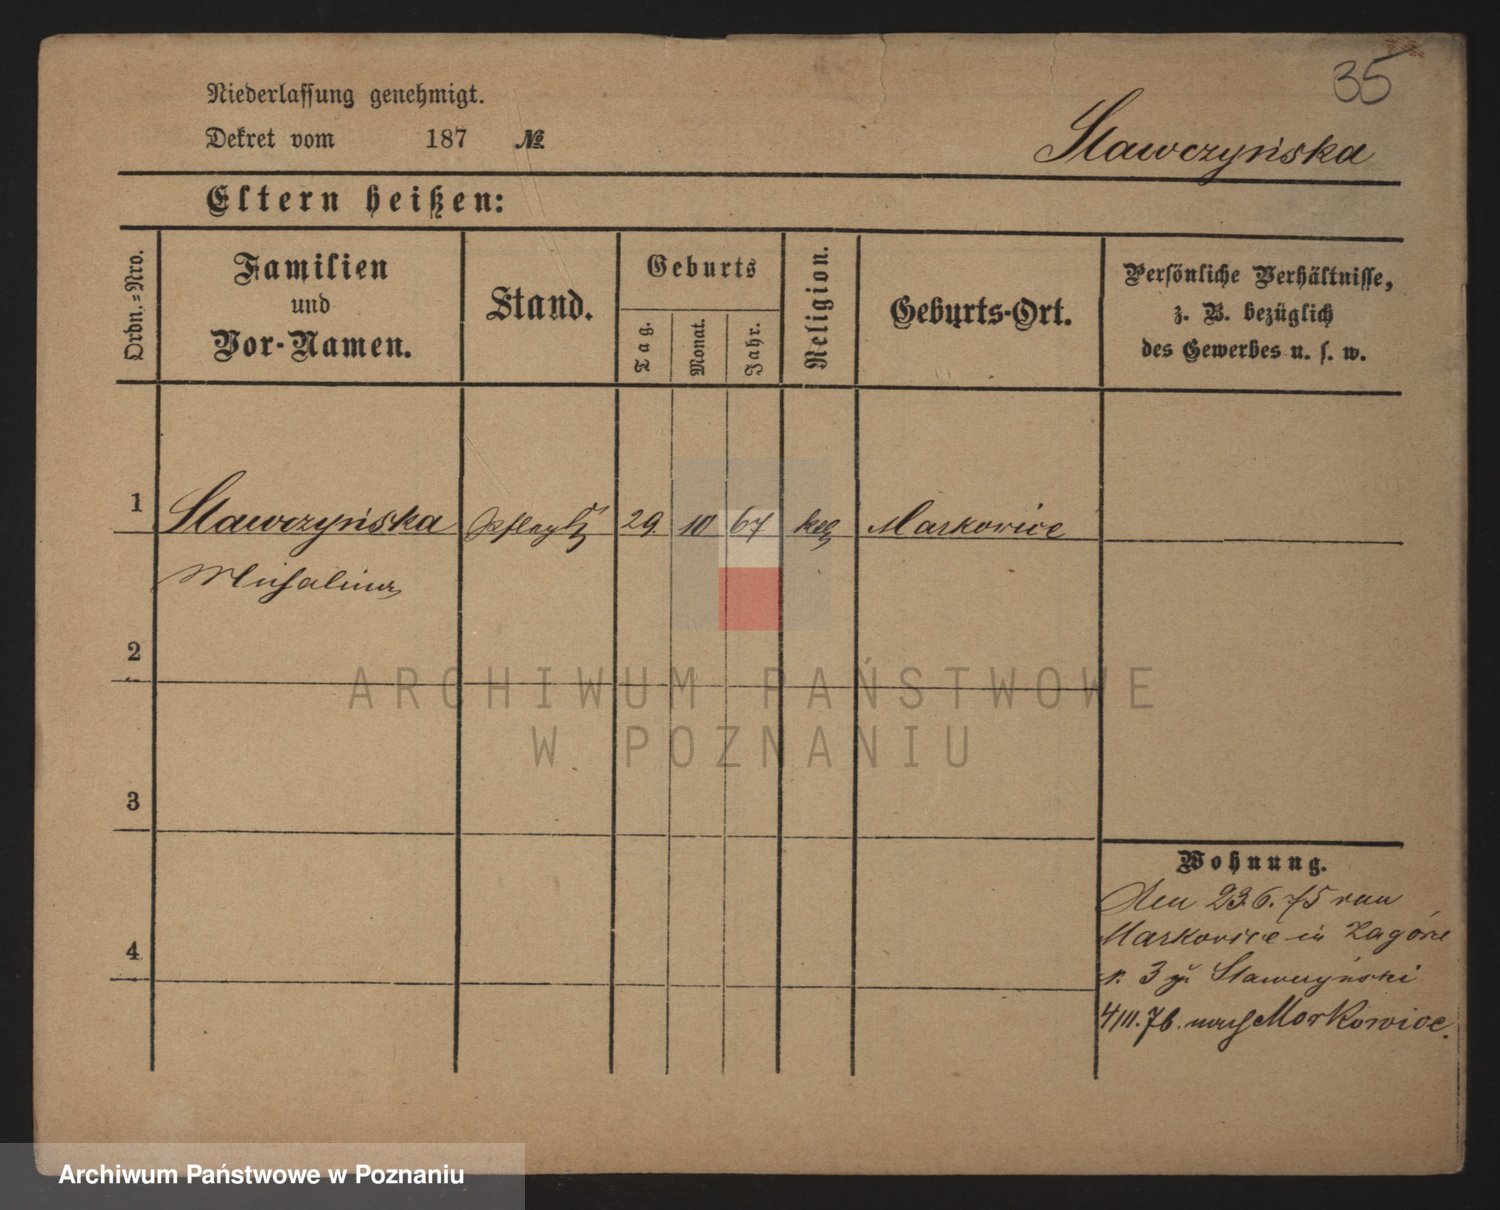 35
Niederlassung genehmigt.
Dekret vom 187 №
Sławczyńska
Eltern heißen:
Ordn.=Nro.
Familien
und
Vor-Namen.
Stand.
Geburts
Tag.
Monat.
Jahr.
Religion.
Geburts-Ort.
Persönliche Verhältnisse,
z. B. bezüglich
des Gewerbes u. s. w.
1 Sławczyńska 29. 10 67 kath Markowice
Michalina
2
ARCHIWUM PAŃSTWOWE
W POZNANIU
3
Wohnung.
Den 23.6.75 von
Markowice in Zagórze
4
3 Sławczyński
4/III.76. nach Markowice.
Archiwum Państwowe w Poznaniu